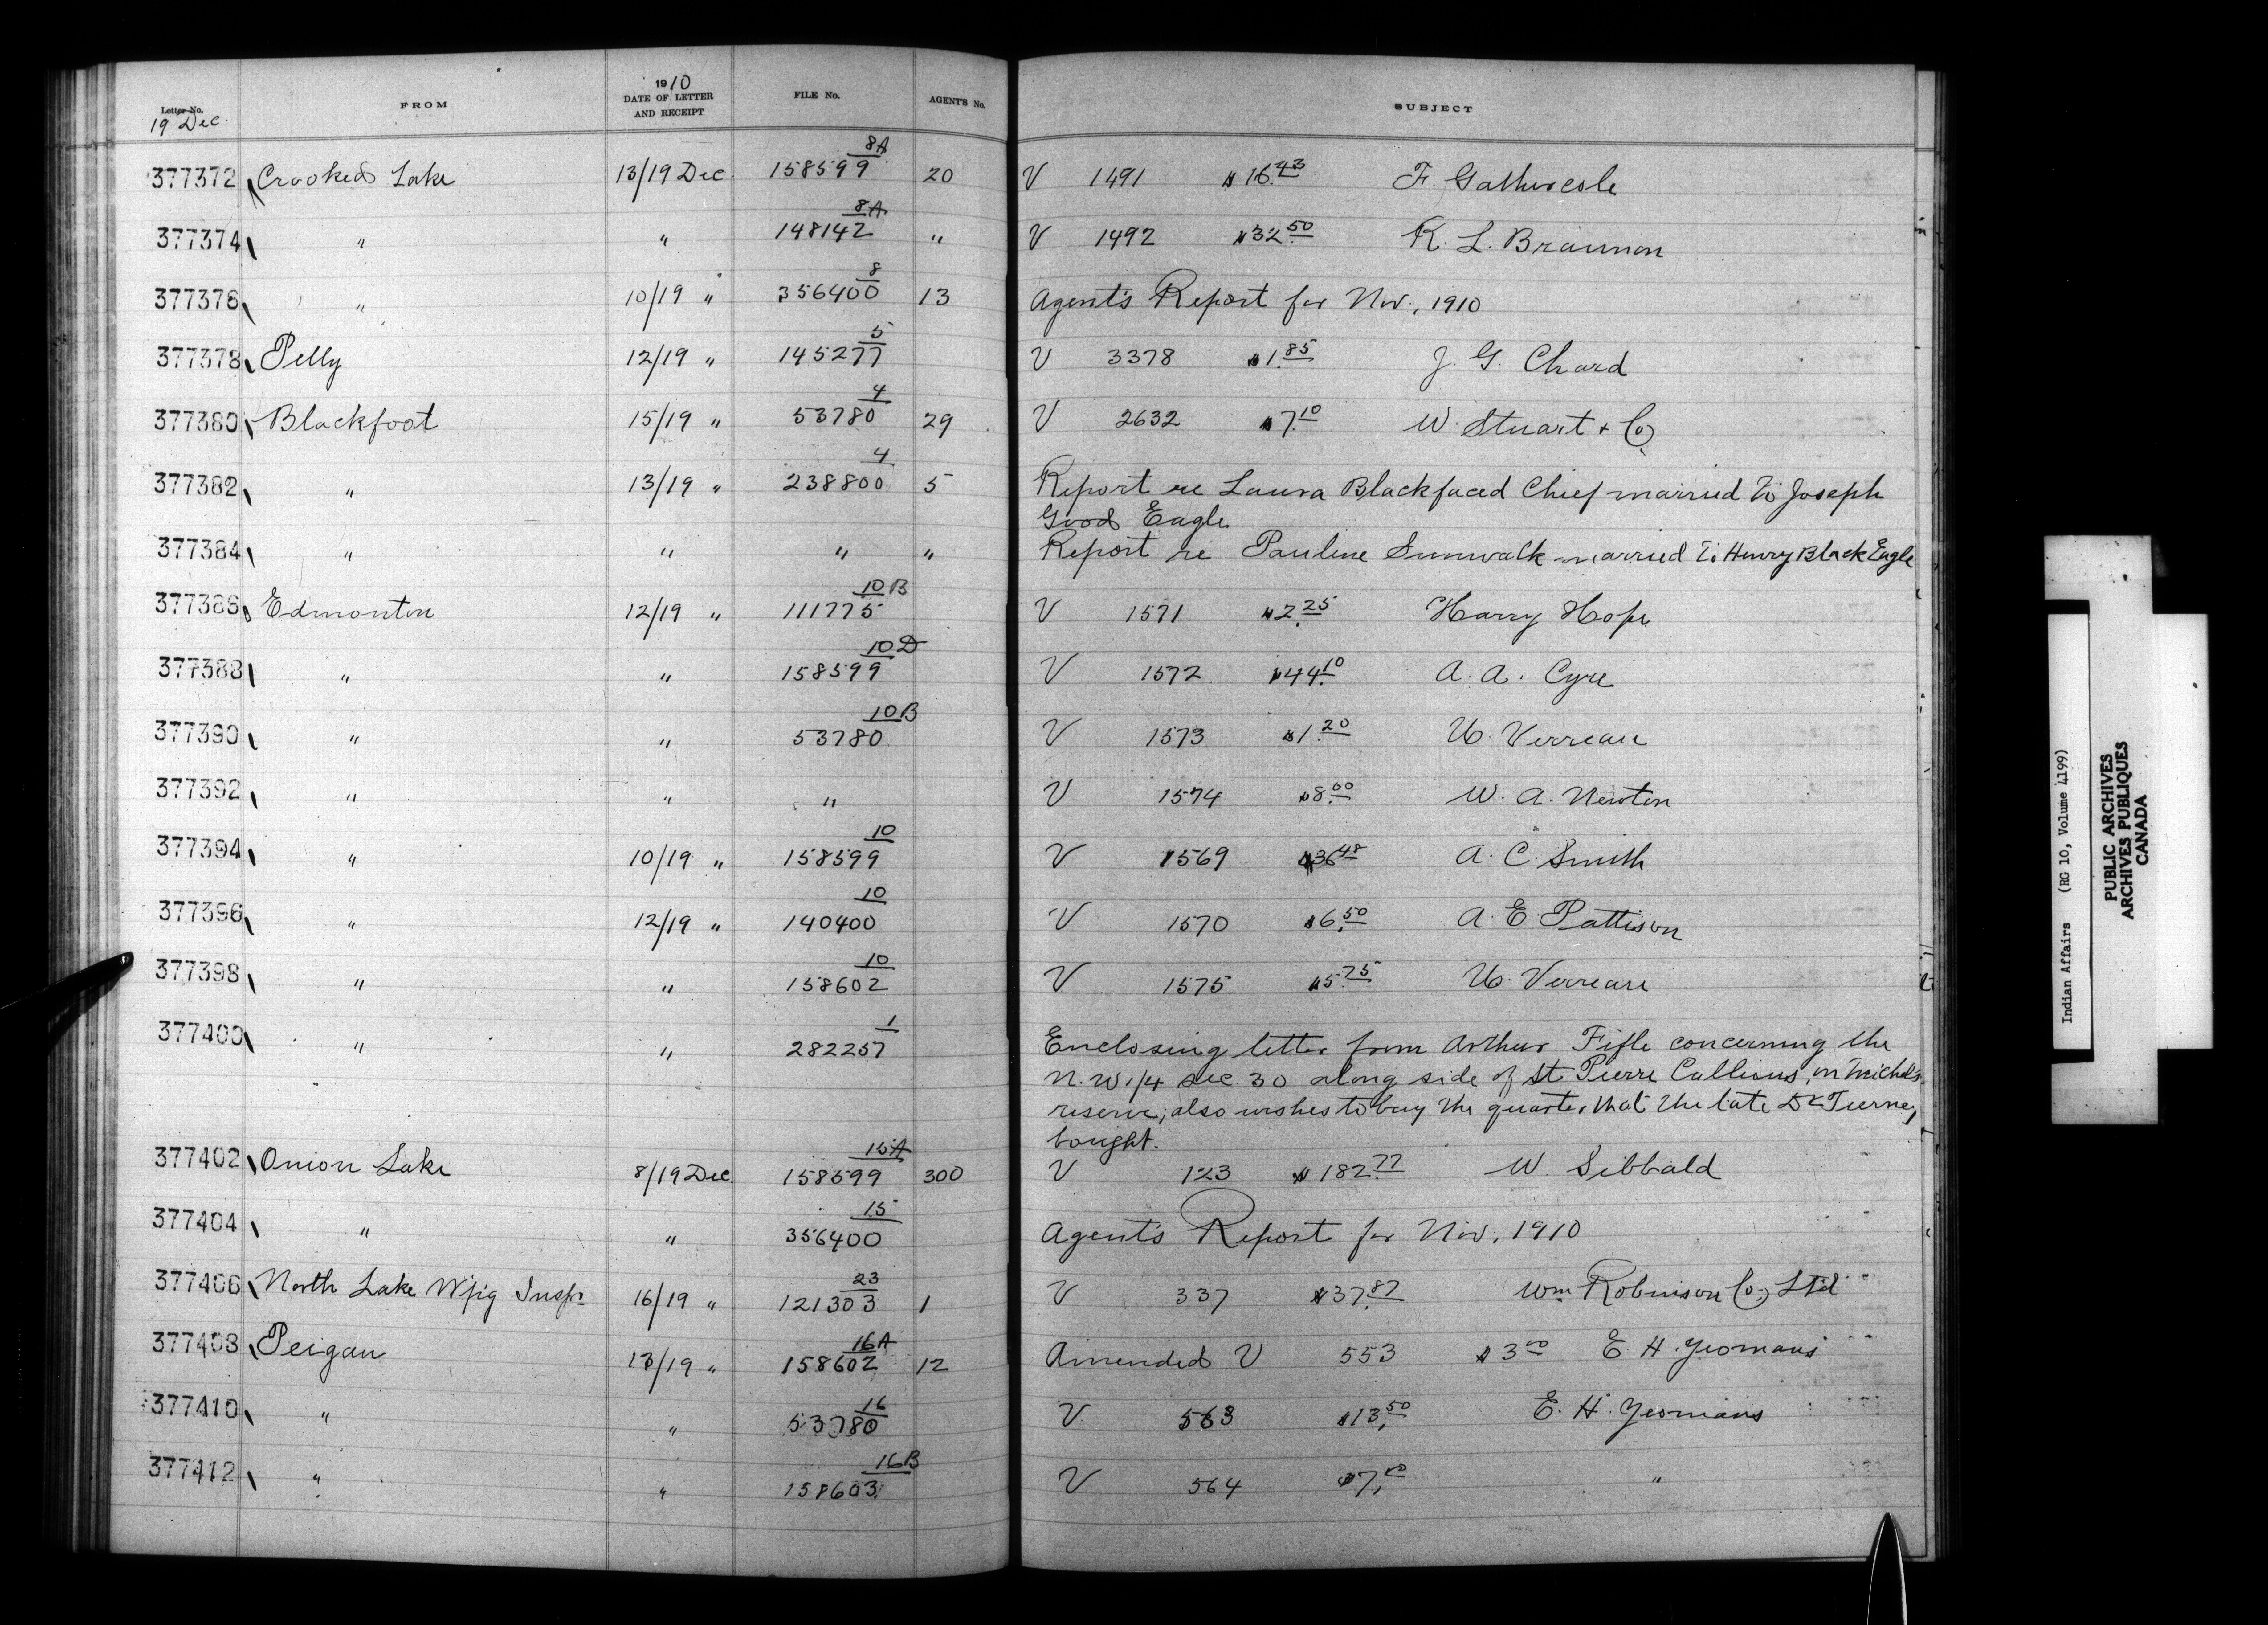 Letter No. FROM 1910 DATE OF LETTER AND RECEIPT FILE No. AGENT'S No. SUBJECT
19 Dec.
377372 Crooked Lake 13/19 Dec 158599 8A 20 V 1491 $16.43 F. Gathercole
377374 " " 148142 8A " V 1492 $32.50 R. L. Braunon
377376 " 10/19 " 356400 8 13 Agent's Report for Nov., 1910
377378 Pelly 12/19 " 145277 5 V 3378 $1.85 J. G. Chard
377380 Blackfoot 15/19 " 53780 4 29 V 2632 $7.10 W. Stuart + Co
377382 " 13/19 " 238800 4 5 Report re Laura Blackfaced Chief married to Joseph
Good Eagle
377384 " " " " Report re Pauline Sunwalk married to Henry Black Eagle
377386 Edmonton 12/19 " 111775 10B V 1571 $2.25 Harry Hope
377388 " " 158599 10D V 1572 $44.10 A. A. Cyre
377390 " " 53780 10B V 1573 $1.20 U. Verreau
377392 " " " V 1574 $8.00 W. A. Newton
377394 " 10/19 " 158599 10 V 1569 $36.48 A. C. Smith
377396 " 12/19 " 140400 10 V 1570 $6.50 A. E. Pattison
377398 " " 158602 10 V 1575 $5.75 U. Verreau
377400 " " 282257 1 Enclosing letter from Arthur Fifle concerning the
N.W. 1/4 sec. 30 along side of St. Pierre Callious, on Michel's
reserve; also wishes to buy the quarter that the late Dr Tierney
bought.
377402 Onion Lake 8/19 Dec. 158599 15A 300 V 123 $182.77 W. Sibbald
377404 " " 356400 15 Agent's Report for Nov., 1910
377406 North Lake W'pig Inspr 16/19 " 121303 23 1 V 337 $37.87 Wm Robinson Co., Ltd
377408 Peigan 13/19 " 158602 16A 12 Amended V 553 $3.00 E. H. Yeomans
377410 " " 53780 16 V 563 $13.50 E. H. Yeomans
377412 " " 158603 16B V 564 $7.00 "
Indian Affairs (RG 10, Volume 4199)
PUBLIC ARCHIVES
ARCHIVES PUBLIQUES
CANADA